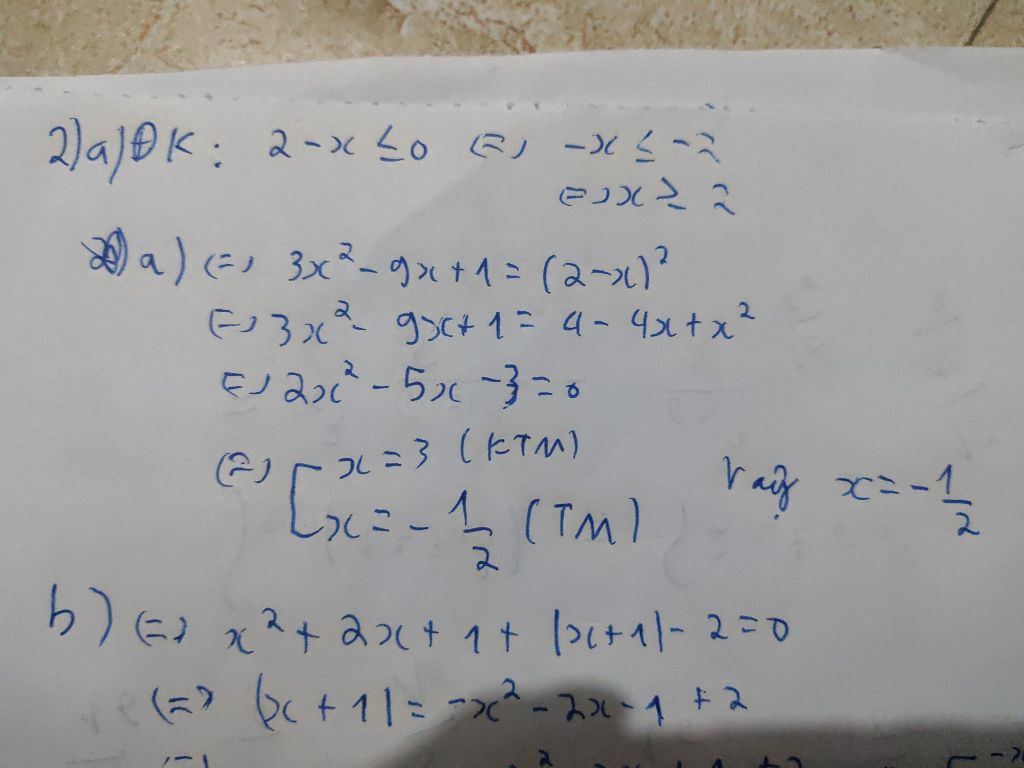 2)a) ĐK: 2-x ≤ 0 (=) -x ≤ -2
(=) x ≥ 2
a) (=) 3x² - 9x + 1 = (2-x)²
(=) 3x² - 9x + 1 = 4 - 4x + x²
(=) 2x² - 5x - 3 = 0
(=) [ x = 3 (KTM)
x = - 1/2 (TM) Vậy x = - 1/2
b) (=) x² + 2x + 1 + |x+1| - 2 = 0
(=) |x + 1| = -x² - 2x - 1 + 2